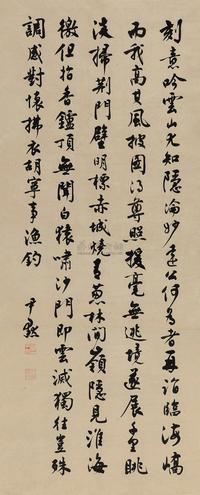 刻意吟雲山尤知隱淪妙遠公何為者再詣臨海嶠
而我高其風披圖得尊照援毫無逃境遂展千里眺
淡掃荊門壁明標赤城燒青蔥林間嶺隱見淮海
徼但指香鑪頂無聞白猿嘯沙門即雲滅獨往豈殊
調感對懷拂衣胡寧事漁釣
尹默